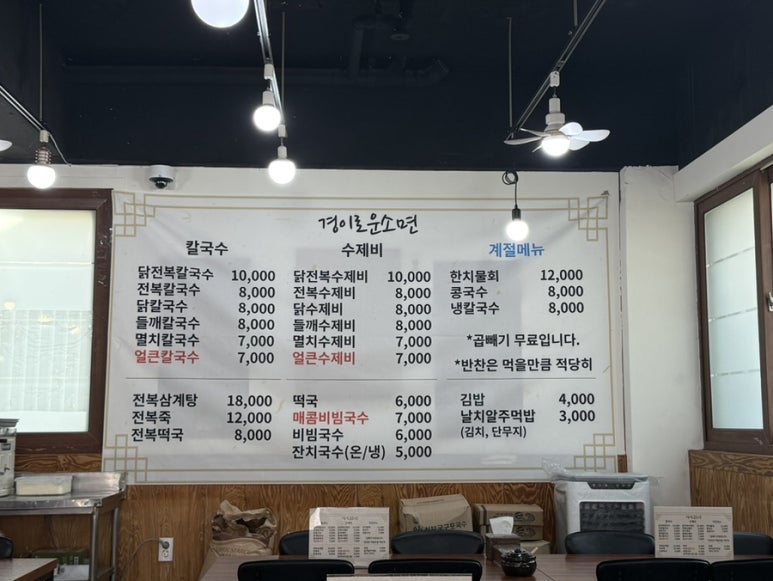 경이로운소면
칼국수
닭전복칼국수 10,000
전복칼국수 8,000
닭칼국수 8,000
들깨칼국수 8,000
멸치칼국수 7,000
얼큰칼국수 7,000
수제비
닭전복수제비 10,000
전복수제비 8,000
닭수제비 8,000
들깨수제비 8,000
멸치수제비 7,000
얼큰수제비 7,000
계절메뉴
한치물회 12,000
콩국수 8,000
냉칼국수 8,000
*곱빼기 무료입니다.
*반찬은 먹을만큼 적당히
전복삼계탕 18,000
전복죽 12,000
전복떡국 8,000
떡국 6,000
매콤비빔국수 7,000
비빔국수 6,000
잔치국수(온/냉) 5,000
김밥 4,000
날치알주먹밥 3,000
(김치, 단무지)